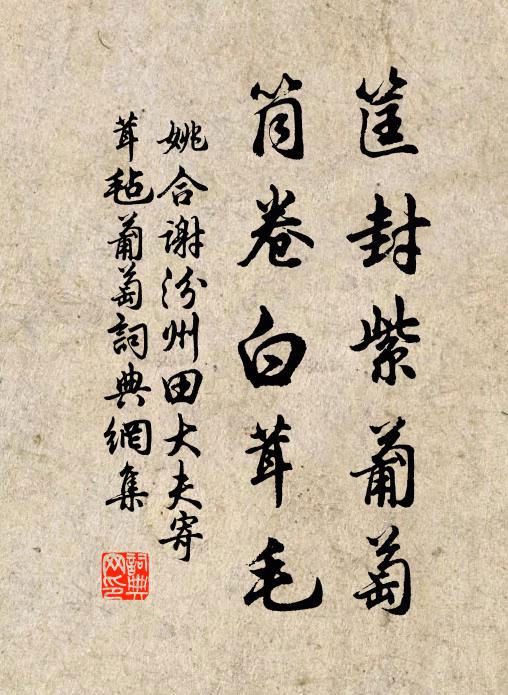 筐封紫葡萄
筒卷白茸毛
姚合谢汾州田大夫寄
茸毡葡萄詞典網集
詞典
网印